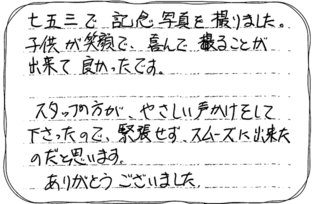 七五三で記念写真を撮りました。
子供が笑顔で、喜んで撮ることが
出来て良かったです。
スタッフの方が、やさしい声かけをして
下さったので、緊張せず、スムーズに出来た
のだと思います。
ありがとうございました。